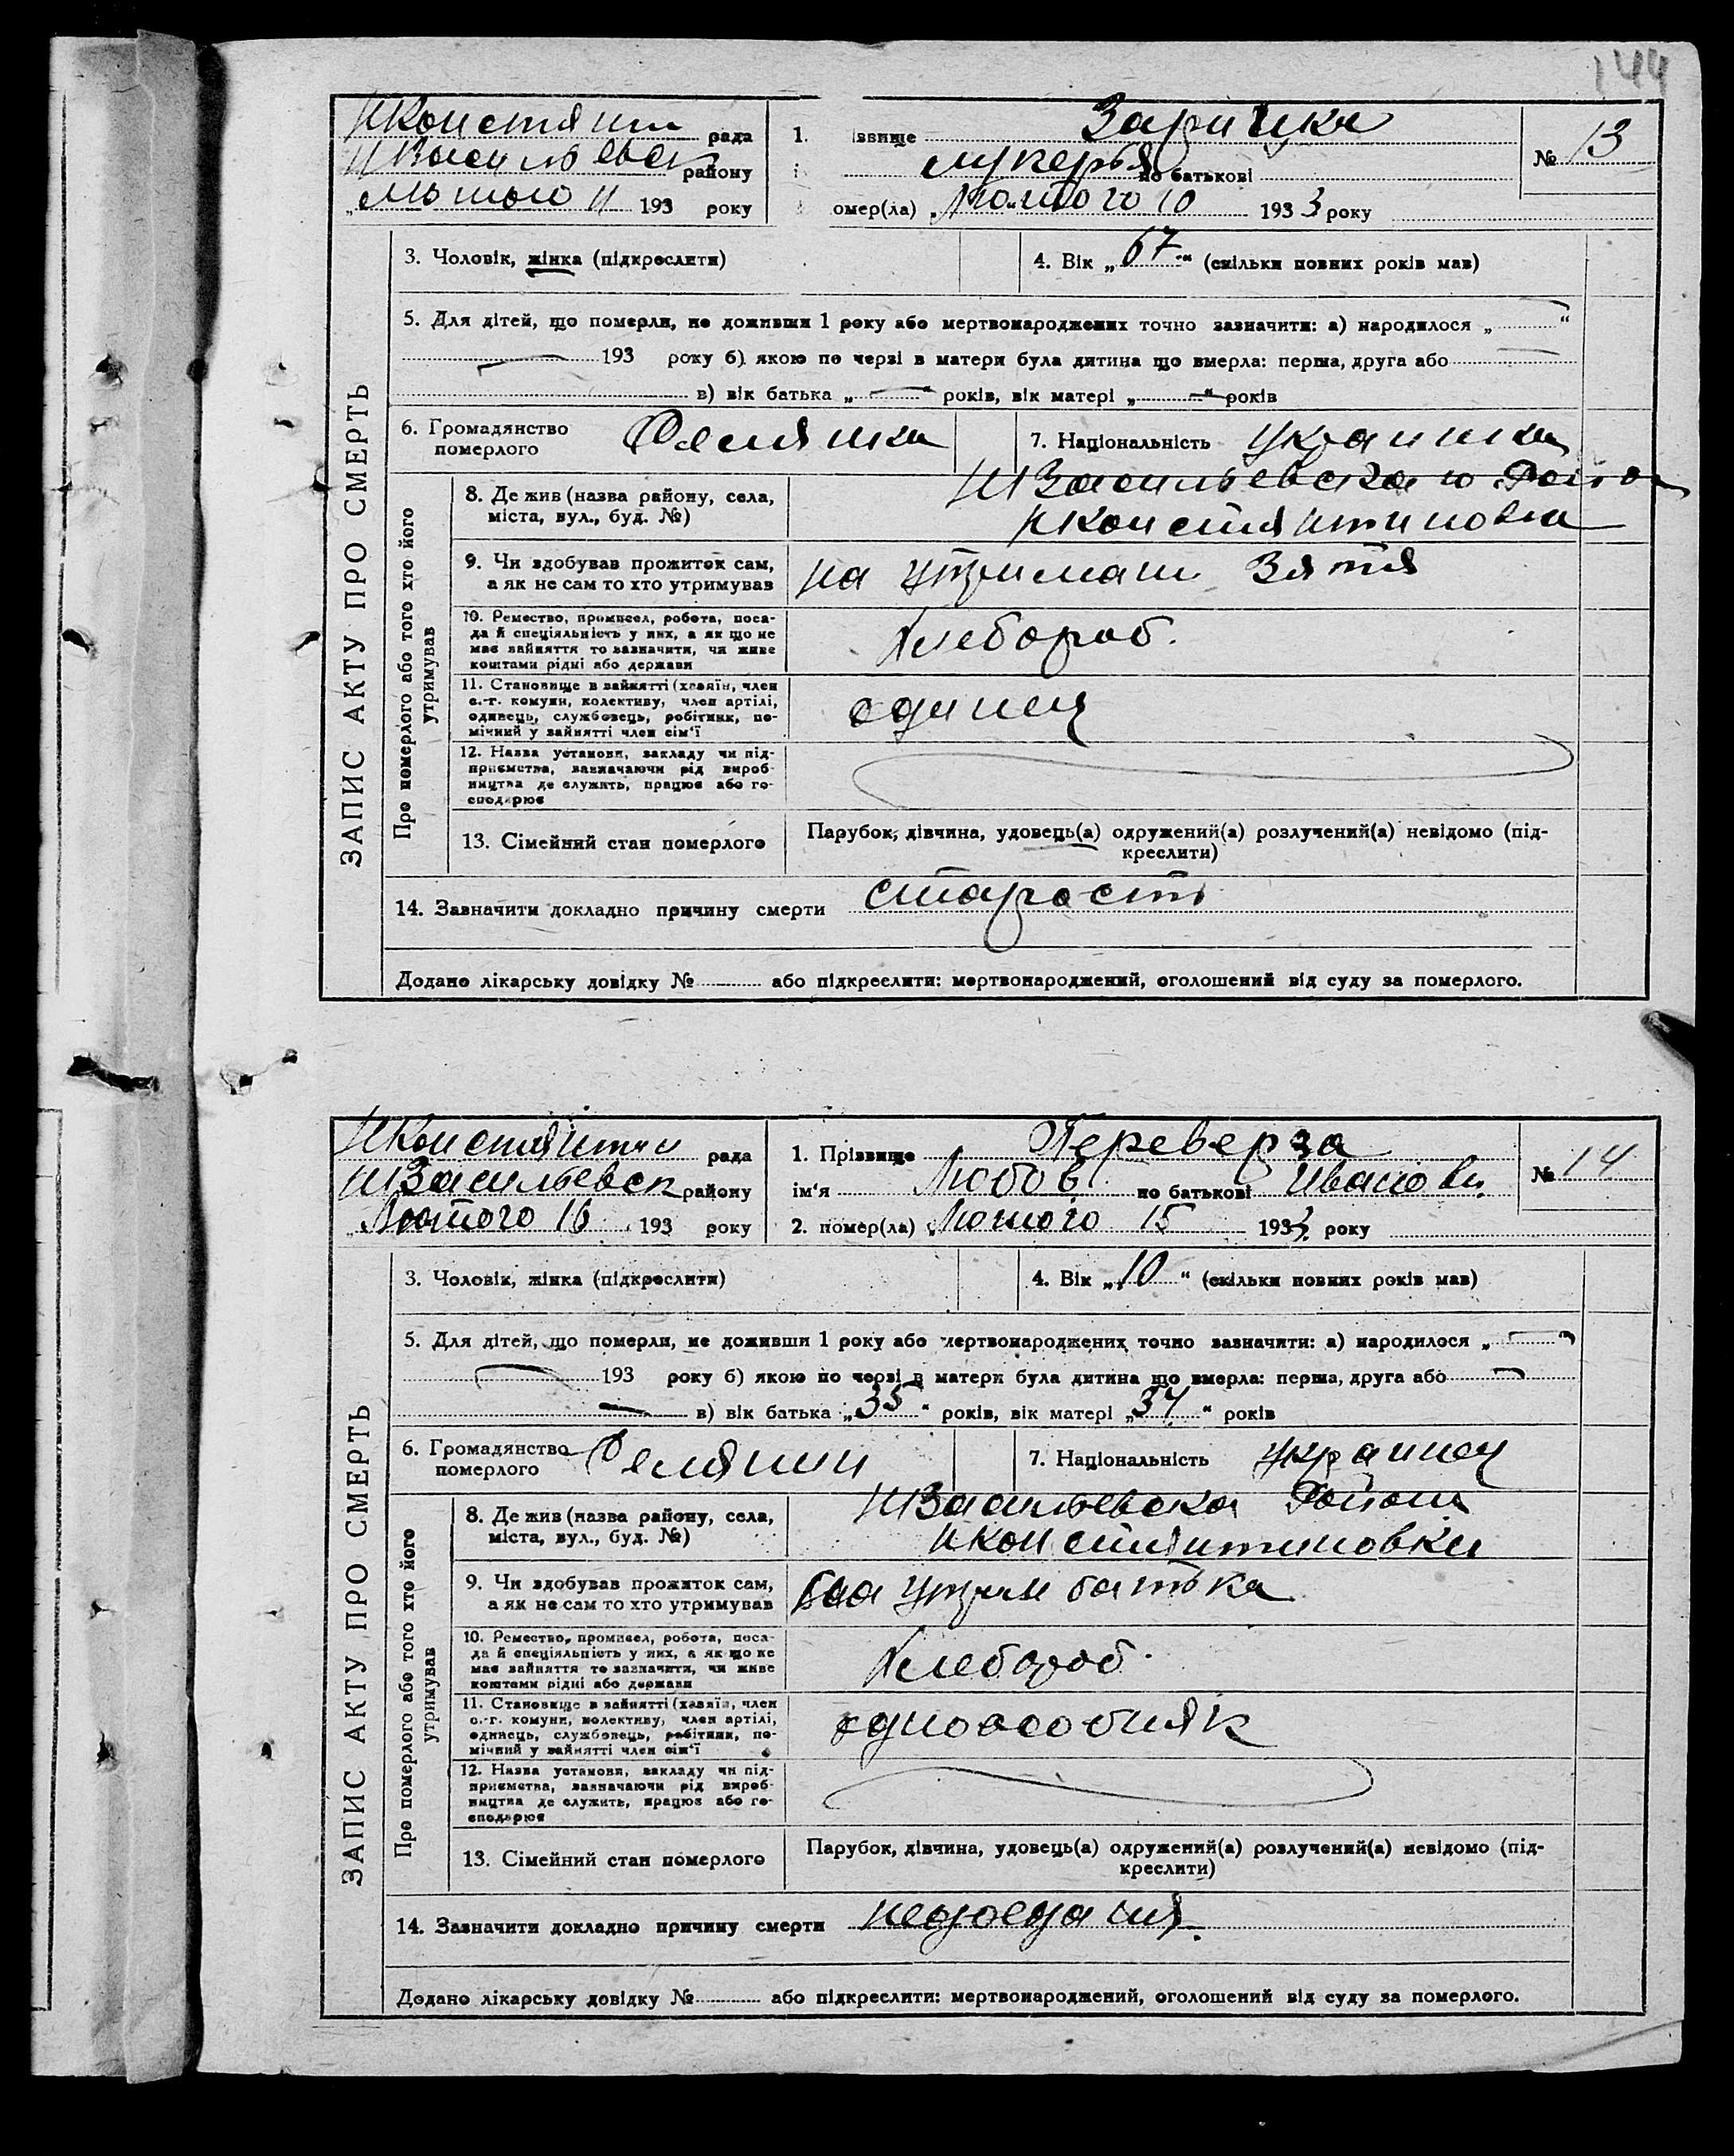 144
НКонстянт рада
НВасильевск району
„Лютого 11 193 року
1. ізвище Заричка
Лукерья по батькові
омер(ла) „Лютого 10 1933 року
№ 13
ЗАПИС АКТУ ПРО СМЕРТЬ
3. Чоловік, жінка (підкреслити)
4. Вік „67“ (скільки повних років мав)
5. Для дітей, що померли, не доживши 1 року або мертвонароджених точно зазначити: а) народилося „ “
193 року б) якою по черзі в матери була дитина що вмерла: перша, друга або
в) вік батька „ “ років, вік матері „ “ років
6. Громадянство
померлого Селянка
7. Національність украинка
Про померлого або того хто його
утримував
8. Де жив (назва району, села,
міста, вул., буд. №)
НВасильевского Район
НКонстянтиновка
9. Чи здобував прожиток сам,
а як не сам то хто утримував
на утриман зятя
10. Ремество, промисел, робота, поса-
да й спеціяльність у них, а як що не
має зайняття то зазначити, чи живе
коштами рідні або держави
Хлебороб.
11. Становище в зайнятті (хазяїн, член
с.-г. комуни, колективу, член артілі,
одинець, службовець, робітник, по-
мічний у зайнятті член сім'ї
одинец
12. Назва установи, закладу чи під-
приємства, зазначаючи рід вироб-
ництва де служить, працює або го-
сподарює
13. Сімейний стан померлого
Парубок, дівчина, удовець(а) одружений(а) розлучений(а) невідомо (під-
креслити)
14. Зазначити докладно причину смерти старость
Додано лікарську довідку № або підкреслити: мертвонароджений, оголошений від суду за померлого.
НКонстянтин рада
НВасильевск району
„Лютого 16 193 року
1. Прізвище Переверза
ім'я Любов по батькові Ивановн
2. помер(ла) „Лютого 15 1933 року
№ 14
ЗАПИС АКТУ ПРО СМЕРТЬ
3. Чоловік, жінка (підкреслити)
4. Вік „10“ (скільки повних років мав)
5. Для дітей, що померли, не доживши 1 року або мертвонароджених точно зазначити: а) народилося „ “
193 року б) якою по черзі в матери була дитина що вмерла: перша, друга або
в) вік батька „35“ років, вік матері „34“ років
6. Громадянство
померлого Селянин
7. Національність украинец
Про померлого або того хто його
утримував
8. Де жив (назва району, села,
міста, вул., буд. №)
НВасильевска Район
НКонстянтиновки
9. Чи здобував прожиток сам,
а як не сам то хто утримував
на утрим батька
10. Ремество, промисел, робота, поса-
да й спеціяльність у них, а як що не
має зайняття то зазначити, чи живе
коштами рідні або держави
Хлебороб.
11. Становище в зайнятті (хазяїн, член
с.-г. комуни, колективу, член артілі,
одинець, службовець, робітник, по-
мічний у зайнятті член сім'ї
одноособняк
12. Назва установи, закладу чи під-
приємства, зазначаючи рід вироб-
ництва де служить, працює або го-
сподарює
13. Сімейний стан померлого
Парубок, дівчина, удовець(а) одружений(а) розлучений(а) невідомо (під-
креслити)
14. Зазначити докладно причину смерти недоедания.
Додано лікарську довідку № або підкреслити: мертвонароджений, оголошений від суду за померлого.